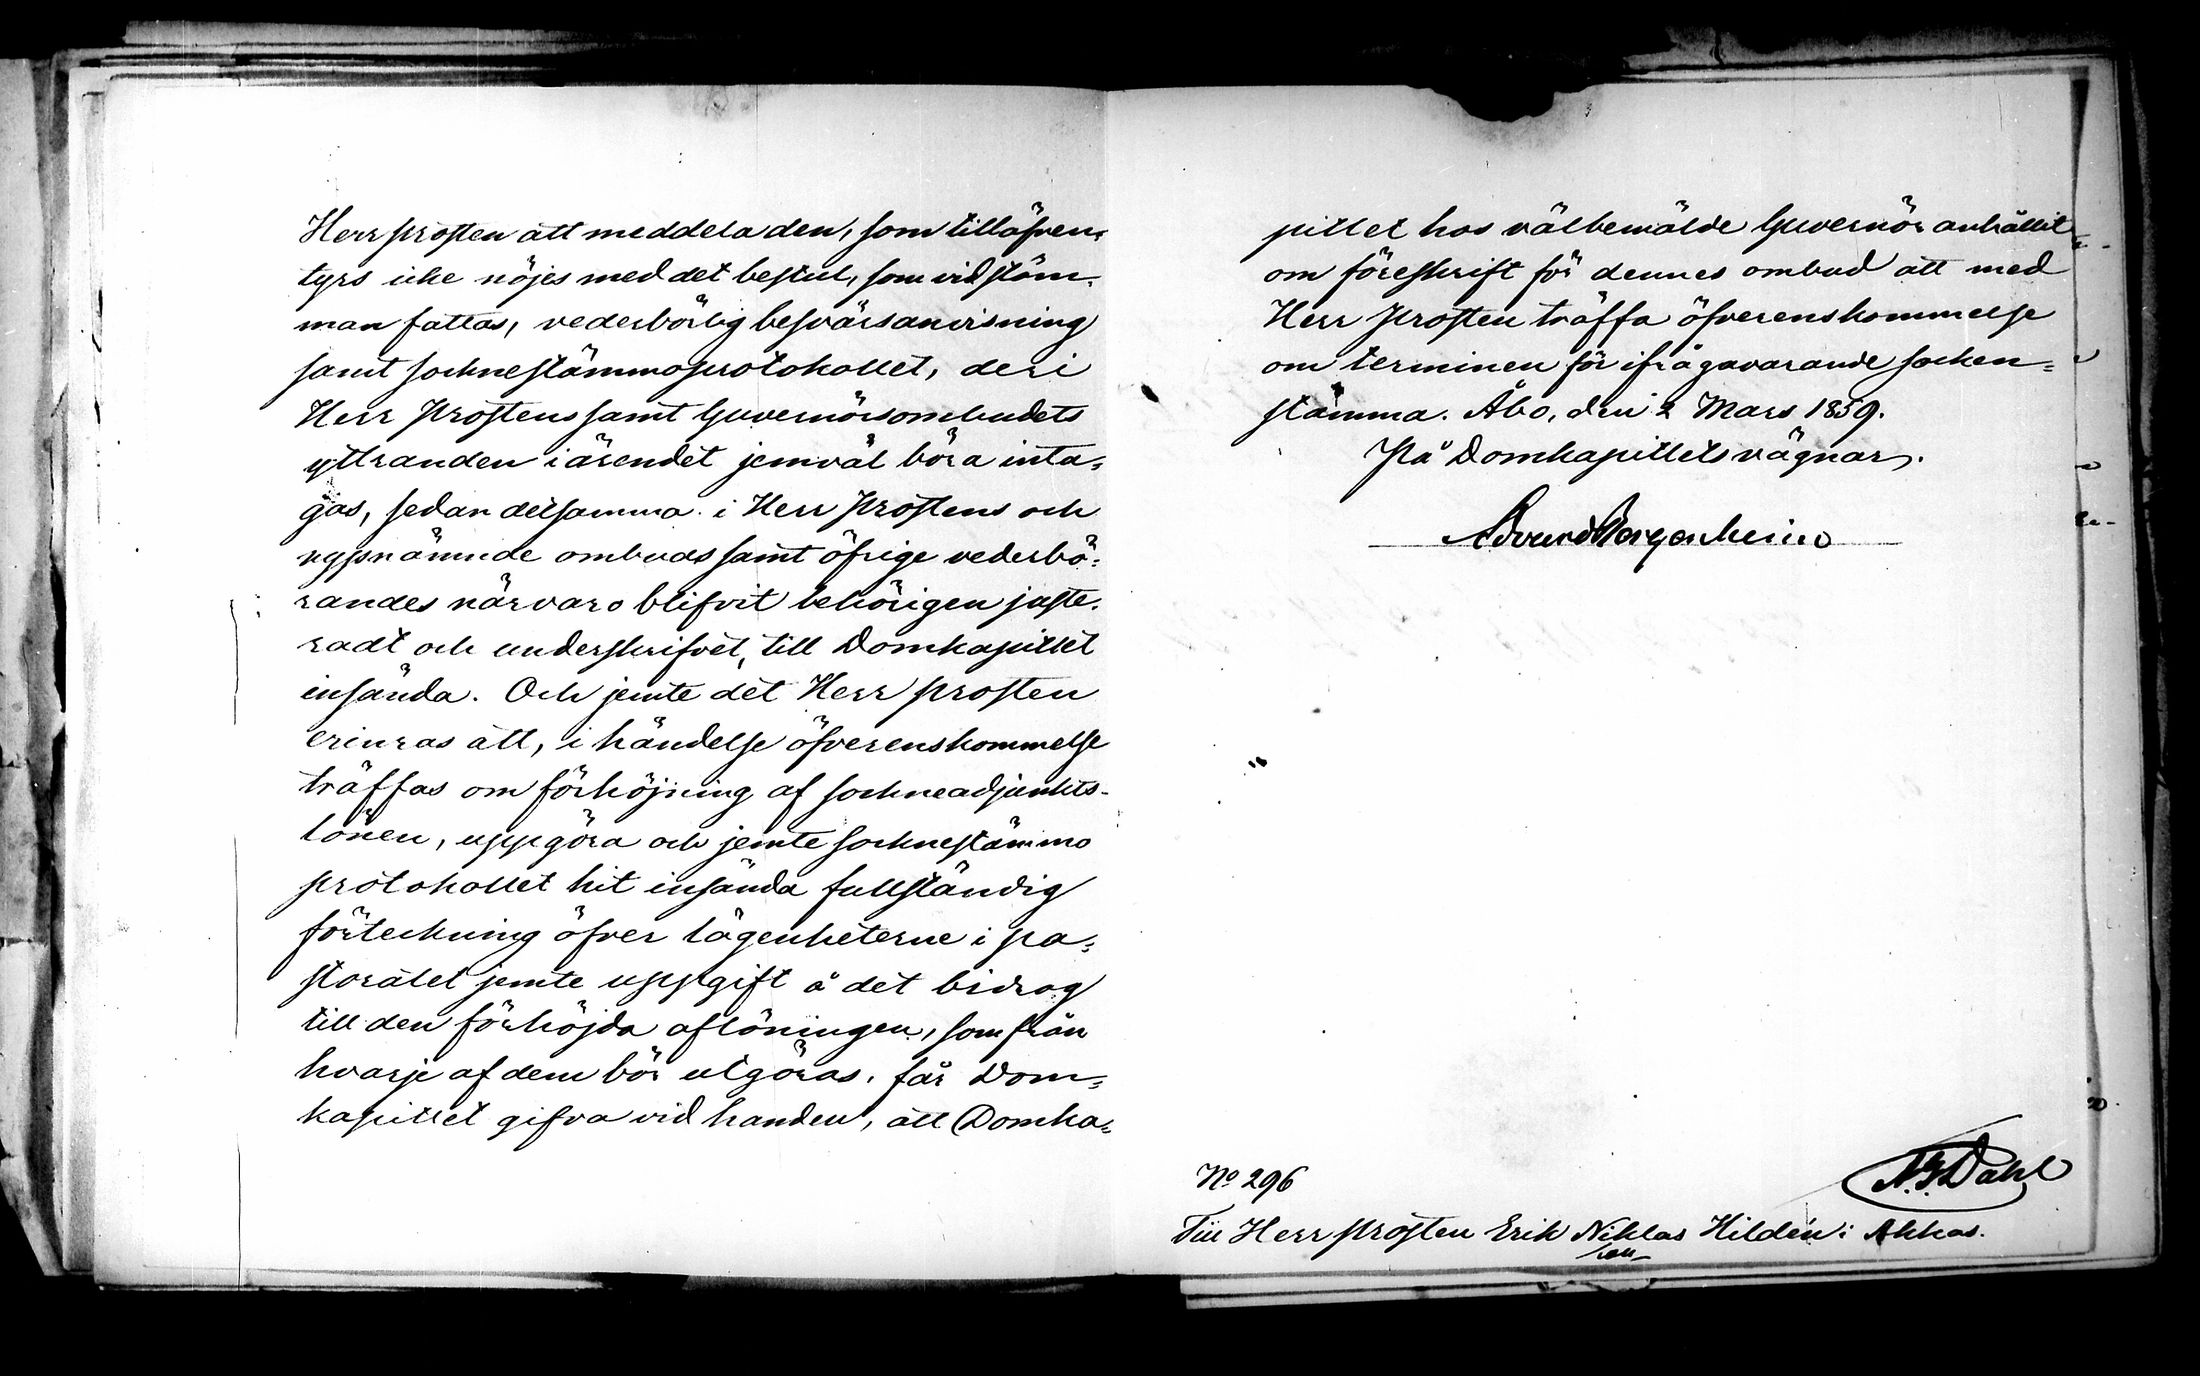 Herr Prosten att meddela den, som tilläfven-
tyrs icke nöjes med det beslut, som vid stäm-
man fattas, vederbörlig besvärsanvisning
samt socknestämmoprotokollet, deri
Herr Prostens samt Guvernörsombudets
yttranden i ärendet jemväl böra inta=
gas, sedan detsamma i Herr Prostens och
nyssnämnde ombuds samt öfrige vederbö=
randes närvaro blifvit behörigen juste-
radt och underskrifvet, till Domkapitlet
insända. Och jemte det Herr Prosten
erinras att, i händelse öfverenskommelse
träffas om förhöjning af sockneadjunkts-
lönen, uppgöra och jemte socknestämmo
protokollet hit insända fullständig
förteckning öfver lägenheterne i pa=
storatet jemte uppgift å det bidrag
till den förhöjda aflöningen, som från
hvarje af dem bör utgöras, får Dom=
kapitlet gifva vid handen, att Domka=
pitlet hos välbemälde Guvernör anhållit
om föreskrift för dennes ombud att med
Herr Prosten träffa öfverenskommelse
om terminen för ifrågavarande socken=
stämma. Åbo, den 2 Mars 1859.
På Domkapitlets vägnar.
Edvard Bergenheim
N. G. Dahl
No 296
Till Herr Prosten Erik Niklas Hildén i Akkas.